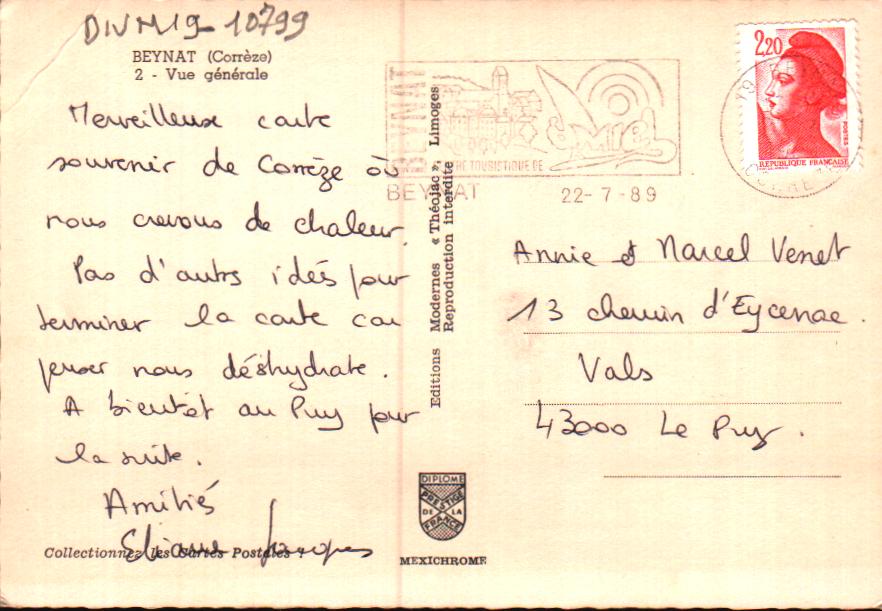 DIVM19-10799
BEYNAT (Corrèze)
2 - Vue générale
Merveilleuse carte
souvenir de Corrèze où
nous crevons de chaleur.
Pas d'autrs idés pour
terminer la carte car
penser nous déshydrate.
A bientôt au Puy pour
la suite.
Amitiés
Eliane Jacques
Collectionnez les Cartes Postales !
Editions Modernes « Théojac », Limoges
Reproduction interdite
DIPLOME
PRESTIGE
DE LA
FRANCE
MEXICHROME
BEYNAT
TOURISTIQUE DE
BEYNAT
22-7-89
2,20
POSTES
REPUBLIQUE FRANÇAISE
Annie et Marcel Venet
13 chemin d'Eycenac.
Vals
43000 Le Puy.